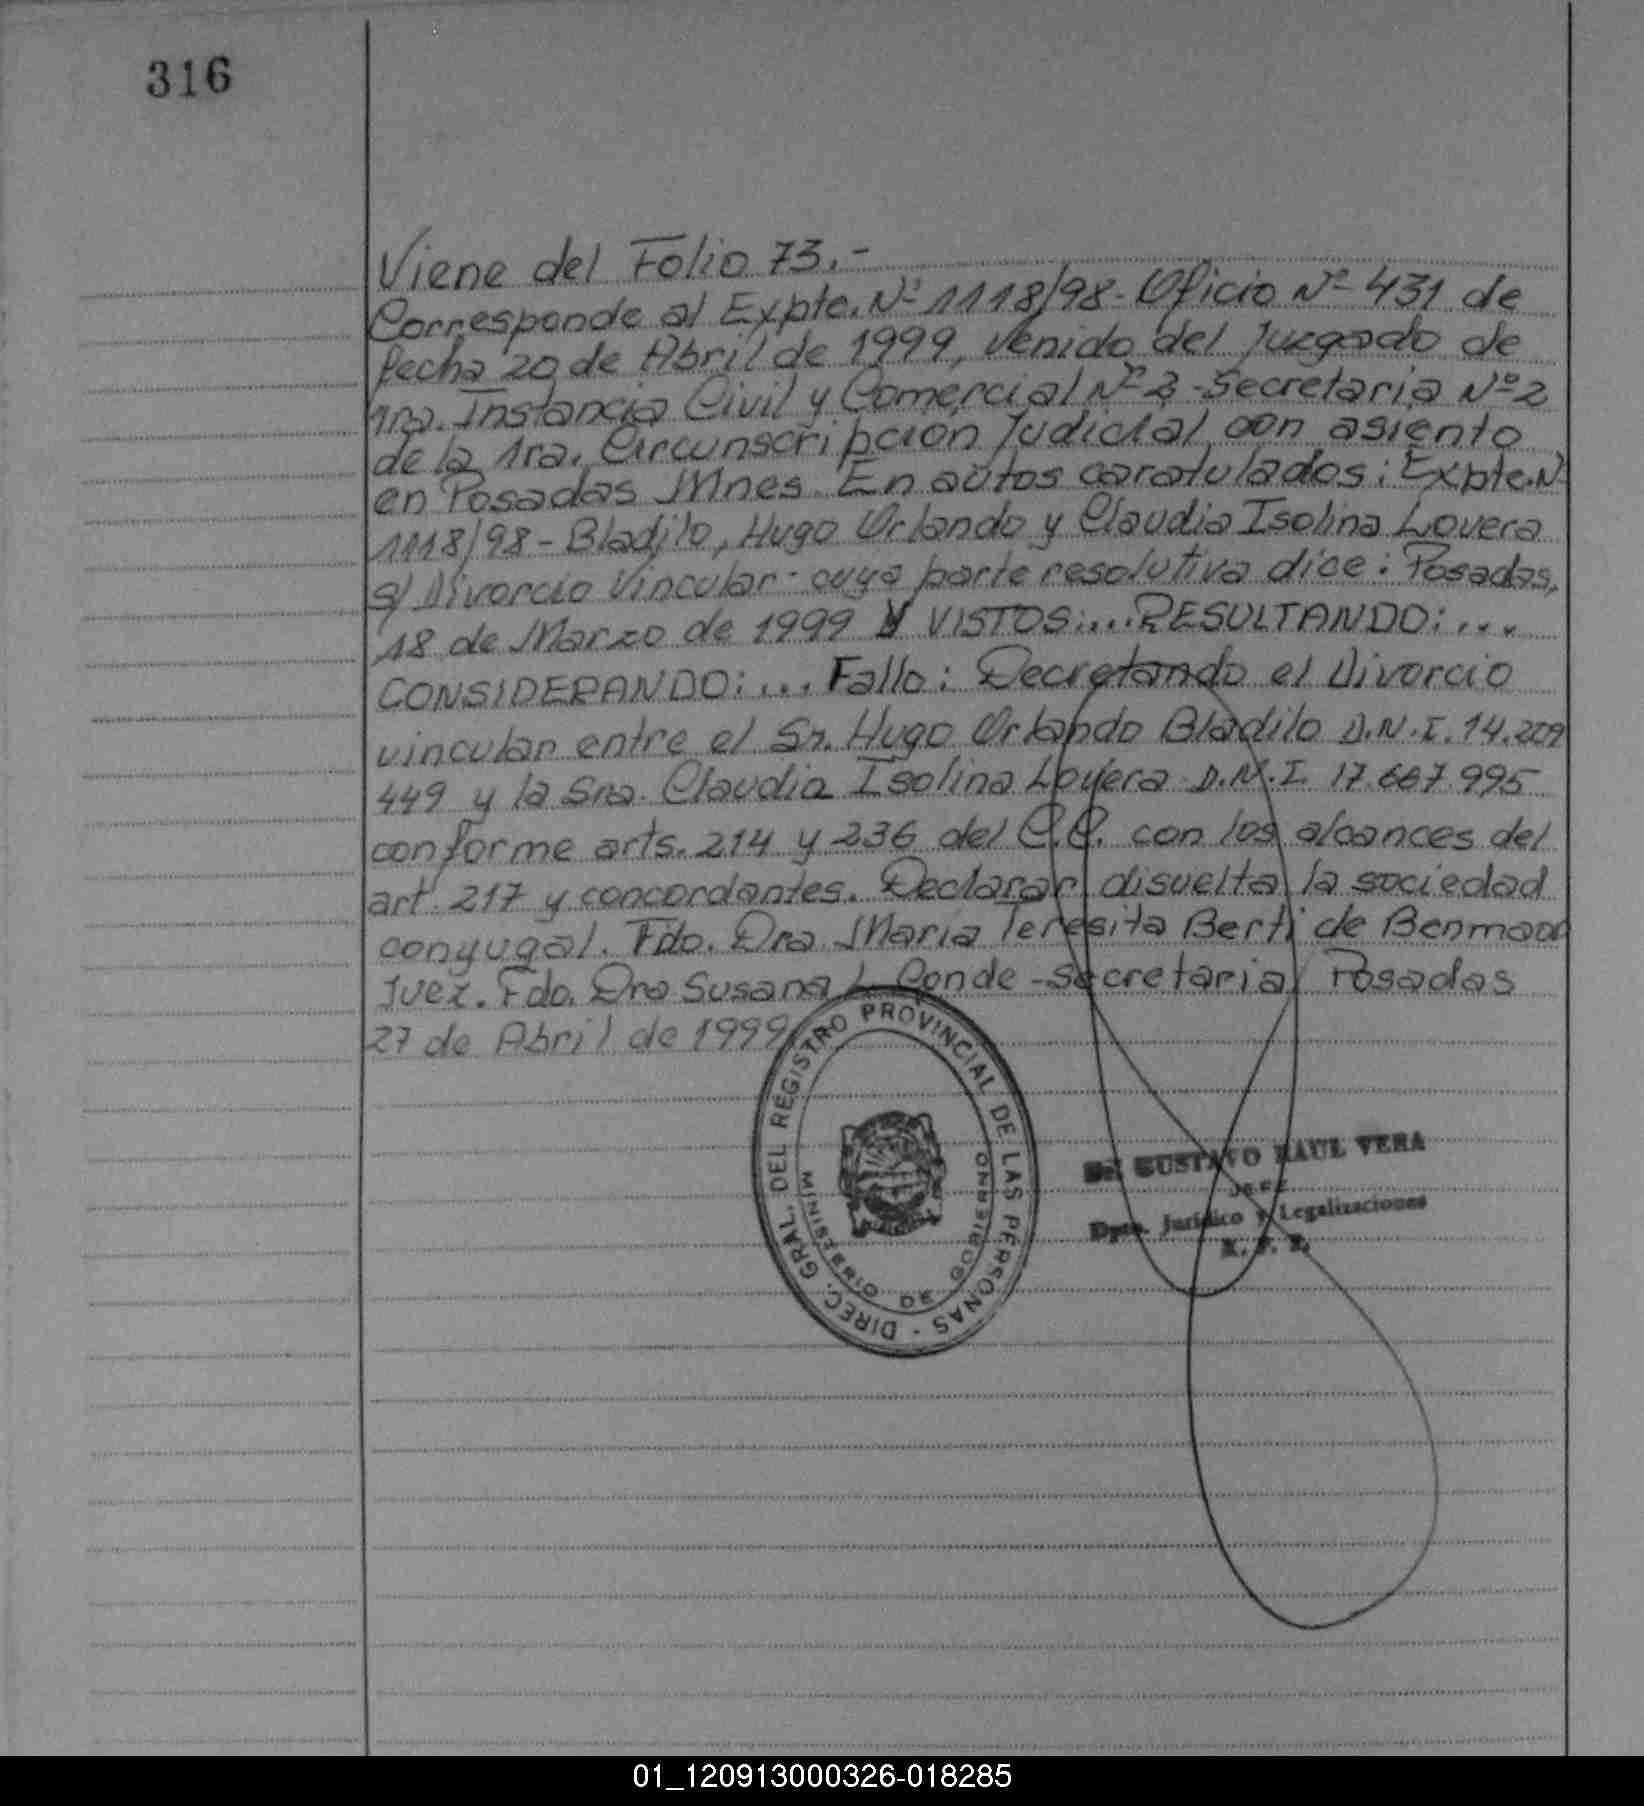 316
Viene del Folio 73.-
Corresponde al Expte. Nº 1118/98 - Oficio Nº 431 de
fecha 20 de Abril de 1999, venido del Juzgado de
1ra. Instancia Civil y Comercial Nº 2 - Secretaria Nº 2
de la 1ra. Circunscripcion Judicial con asiento
en Posadas Mnes. En autos caratulados: Expte. Nº
1118/98 - Bladilo, Hugo Orlando y Claudia Isolina Lovera
s/ Divorcio Vincular - cuya parte resolutiva dice: Posadas,
18 de Marzo de 1999 Y VISTOS:... RESULTANDO:...
CONSIDERANDO:... Fallo: Decretando el Divorcio
vincular entre el Sr. Hugo Orlando Bladilo D.N.I. 14.209
449 y la Sra. Claudia Isolina Lovera D.N.I. 17.667.995
conforme arts. 214 y 236 del C.C. con los alcances del
art. 217 y concordantes. Declarar disuelta la sociedad
conyugal. Fdo. Dra Maria Teresita Berti de Benmaor
Juez. Fdo. Dra Susana L. Conde - Secretaria Posadas
27 de Abril de 1999
DIREC. GRAL. DEL REGISTRO PROVINCIAL DE LAS PERSONAS -
MINISTERIO DE GOBIERNO
GUSTAVO RAUL VERA
JEFE
Dpto. Jurídico y Legalizaciones
R. P. P.
01_120913000326-018285